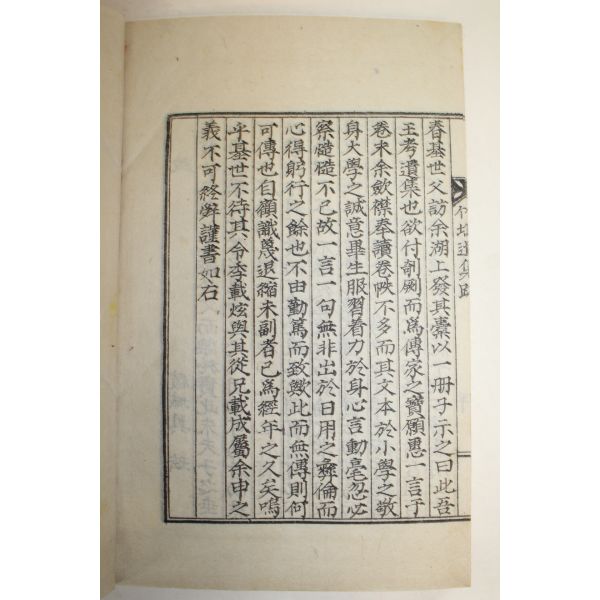 春基世父訪余湖上發其橐以一冊子示之曰此吾
王考遺集也欲付剞劂而爲傳家之寶願惠一言于
卷末余歛襟奉讀卷帙不多而其文本於小學之敬
身大學之誠意畢生服習着力於身心言動毫忽必
察慥慥不已故一言一句無非出於日用之彛倫而
心得躬行之餘也不由勤篤而致歟此而無傳則何
可傳也自顧識蔑退縮未副者已爲經年之久矣嗚
乎基世不待其令季載炫與其從兄載成屬余申之
義不可終辤謹書如右
遺集跋